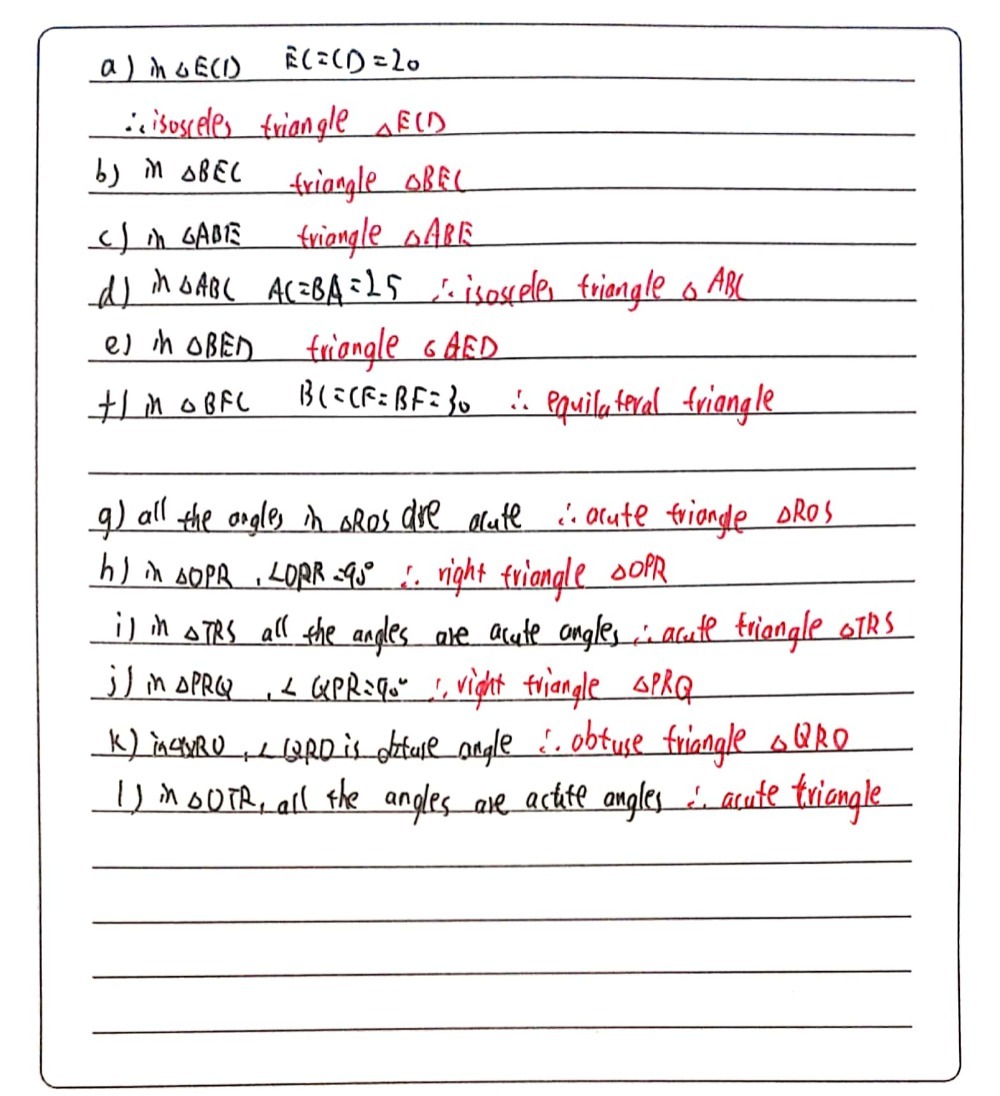 a) in △ECD EC=CD=20
∴ isosceles triangle △ECD
b) in △BEC triangle △BEC
c) in △ABE triangle △ABE
d) in △ABC AC=BA=25 ∴ isosceles triangle △ABC
e) in △BED triangle △AED
f) in △BFC BC=CF=BF=30 ∴ equilateral triangle
g) all the angles in △ROS are acute ∴ acute triangle △ROS
h) in △OPR, ∠OPR=90° ∴ right triangle △OPR
i) in △TRS all the angles are acute angles ∴ acute triangle △TRS
j) in △PRQ, ∠QPR=90° ∴ right triangle △PRQ
k) in △QRO, ∠QRO is obtuse angle ∴ obtuse triangle △QRO
l) in △OTR, all the angles are acute angles ∴ acute triangle